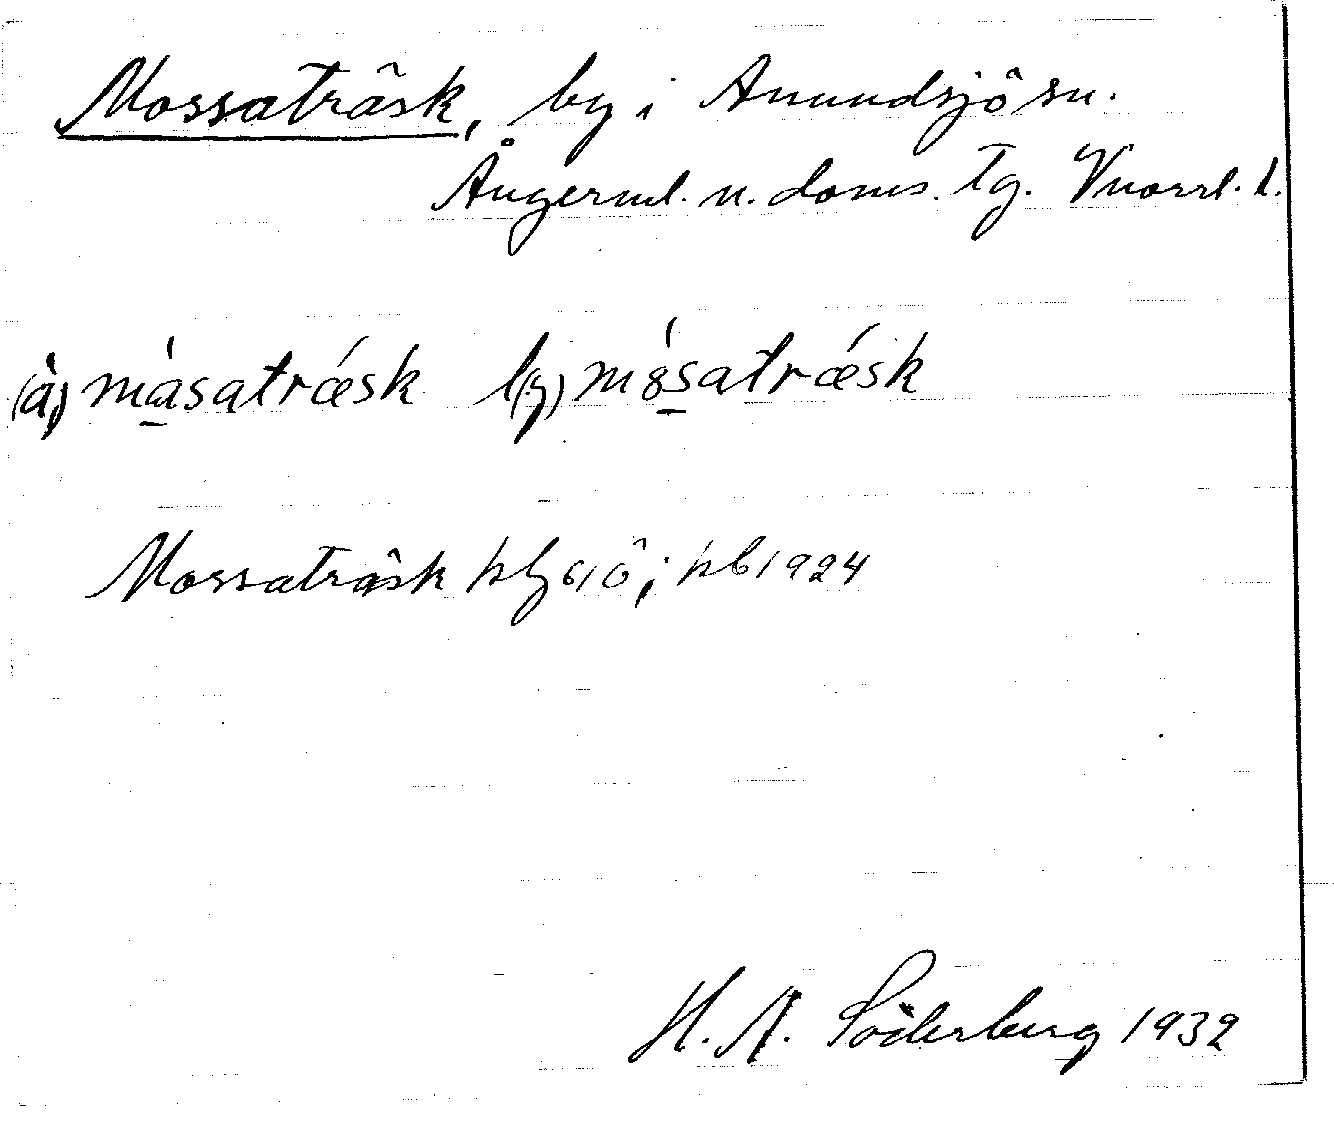 Mossaträsk, by i Anundsjö sn.
Ångerml. n. doms. tg. Vnorrl. l.
(å) måsatræsk l(g) mȯsatræsk
Mossaträsk hbg 61ö; hb 1924
H. A. Söderberg 1932